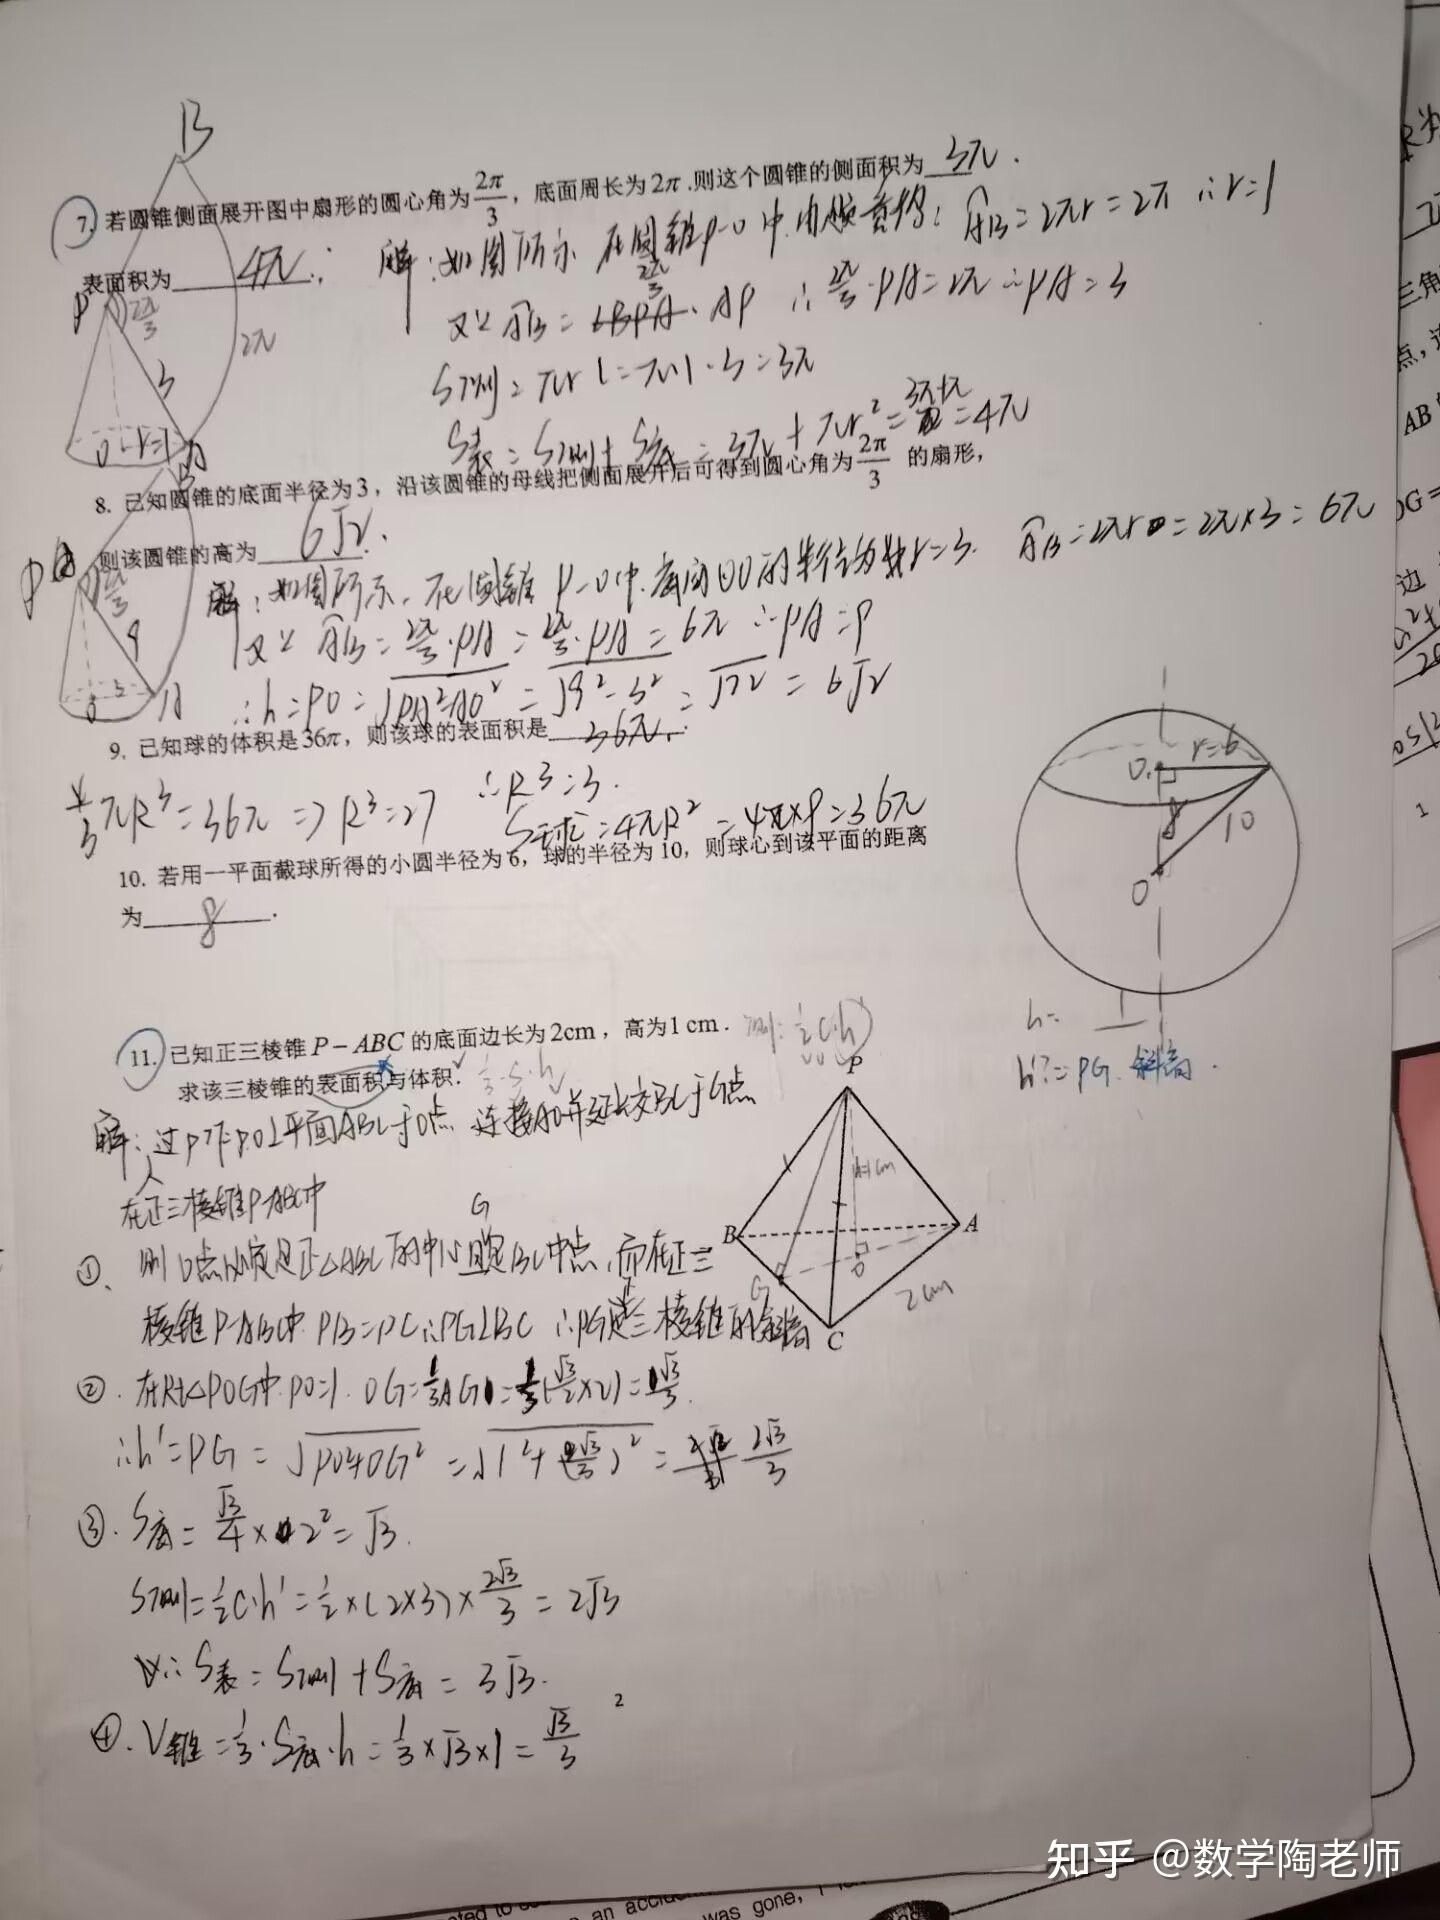 B
7. 若圆锥侧面展开图中扇形的圆心角为2π/3，底面周长为2π.则这个圆锥的侧面积为 3π .
表面积为 4π .
解：如图所示 在圆锥P-O中.由题意得：AB=2πr=2π ∴r=1
又∵AB= 2π/3 ·AP ∴ 2π/3·PA=2π ∴PA=3
S侧=πrl=π·1·3=3π
S表=S侧+S底=3π+πr²=3π+π=4π
P 2π/3 3 2π
O r=1 A
8. 已知圆锥的底面半径为3，沿该圆锥的母线把侧面展开后可得到圆心角为2π/3 的扇形，
则该圆锥的高为 6√2 .
解：如图所示. 在圆锥P-O中.底面⊙O的半径为r=3. AB=2πr=2π×3=6π
又∵AB=2π/3·PA=2π/3·PA=6π ∴PA=9
∴h=PO=√PA²-AO²=√9²-3²=√72=6√2
B P 2π/3 9
O 3 A
9. 已知球的体积是36π，则该球的表面积是 36π .
4/3πR³=36π =>R³=27 ∴R³=3.
S球=4πR²=4π×9=36π
10. 若用一平面截球所得的小圆半径为6，球的半径为10，则球心到该平面的距离
为 8 .
O₁ r=6
8 10
O
11. 已知正三棱锥P-ABC的底面边长为2cm，高为1cm.
侧：1/2 C·h'
求该三棱锥的表面积与体积.
1/3·S·h
h= 1
h'?=PG. 斜高.
解：过P作PO⊥平面ABC于O点 连接AO并延长交BC于G点
在正三棱锥P-ABC中
① 则O点必定是正△ABC的中心且G是BC中点，而在正三
棱锥P-ABC中.PB=PC∴PG⊥BC ∴PG是正三棱锥的斜高
②. 在Rt△POG中.PO=1. OG=1/3AG=1/3(√3/2×2)=√3/3.
∴h'=PG=√PO²+OG²=√1²+(√3/3)²=2√3/3
③. S底=√3/4×2²=√3.
S侧=1/2C·h'=1/2×(2×3)×2√3/3=2√3
∴S表=S侧+S底=3√3.
④. V锥=1/3·S底·h=1/3×√3×1=√3/3
2
P
h=1cm
B A
O
G 2cm
C
知乎 @数学陶老师
an accid
was gone,